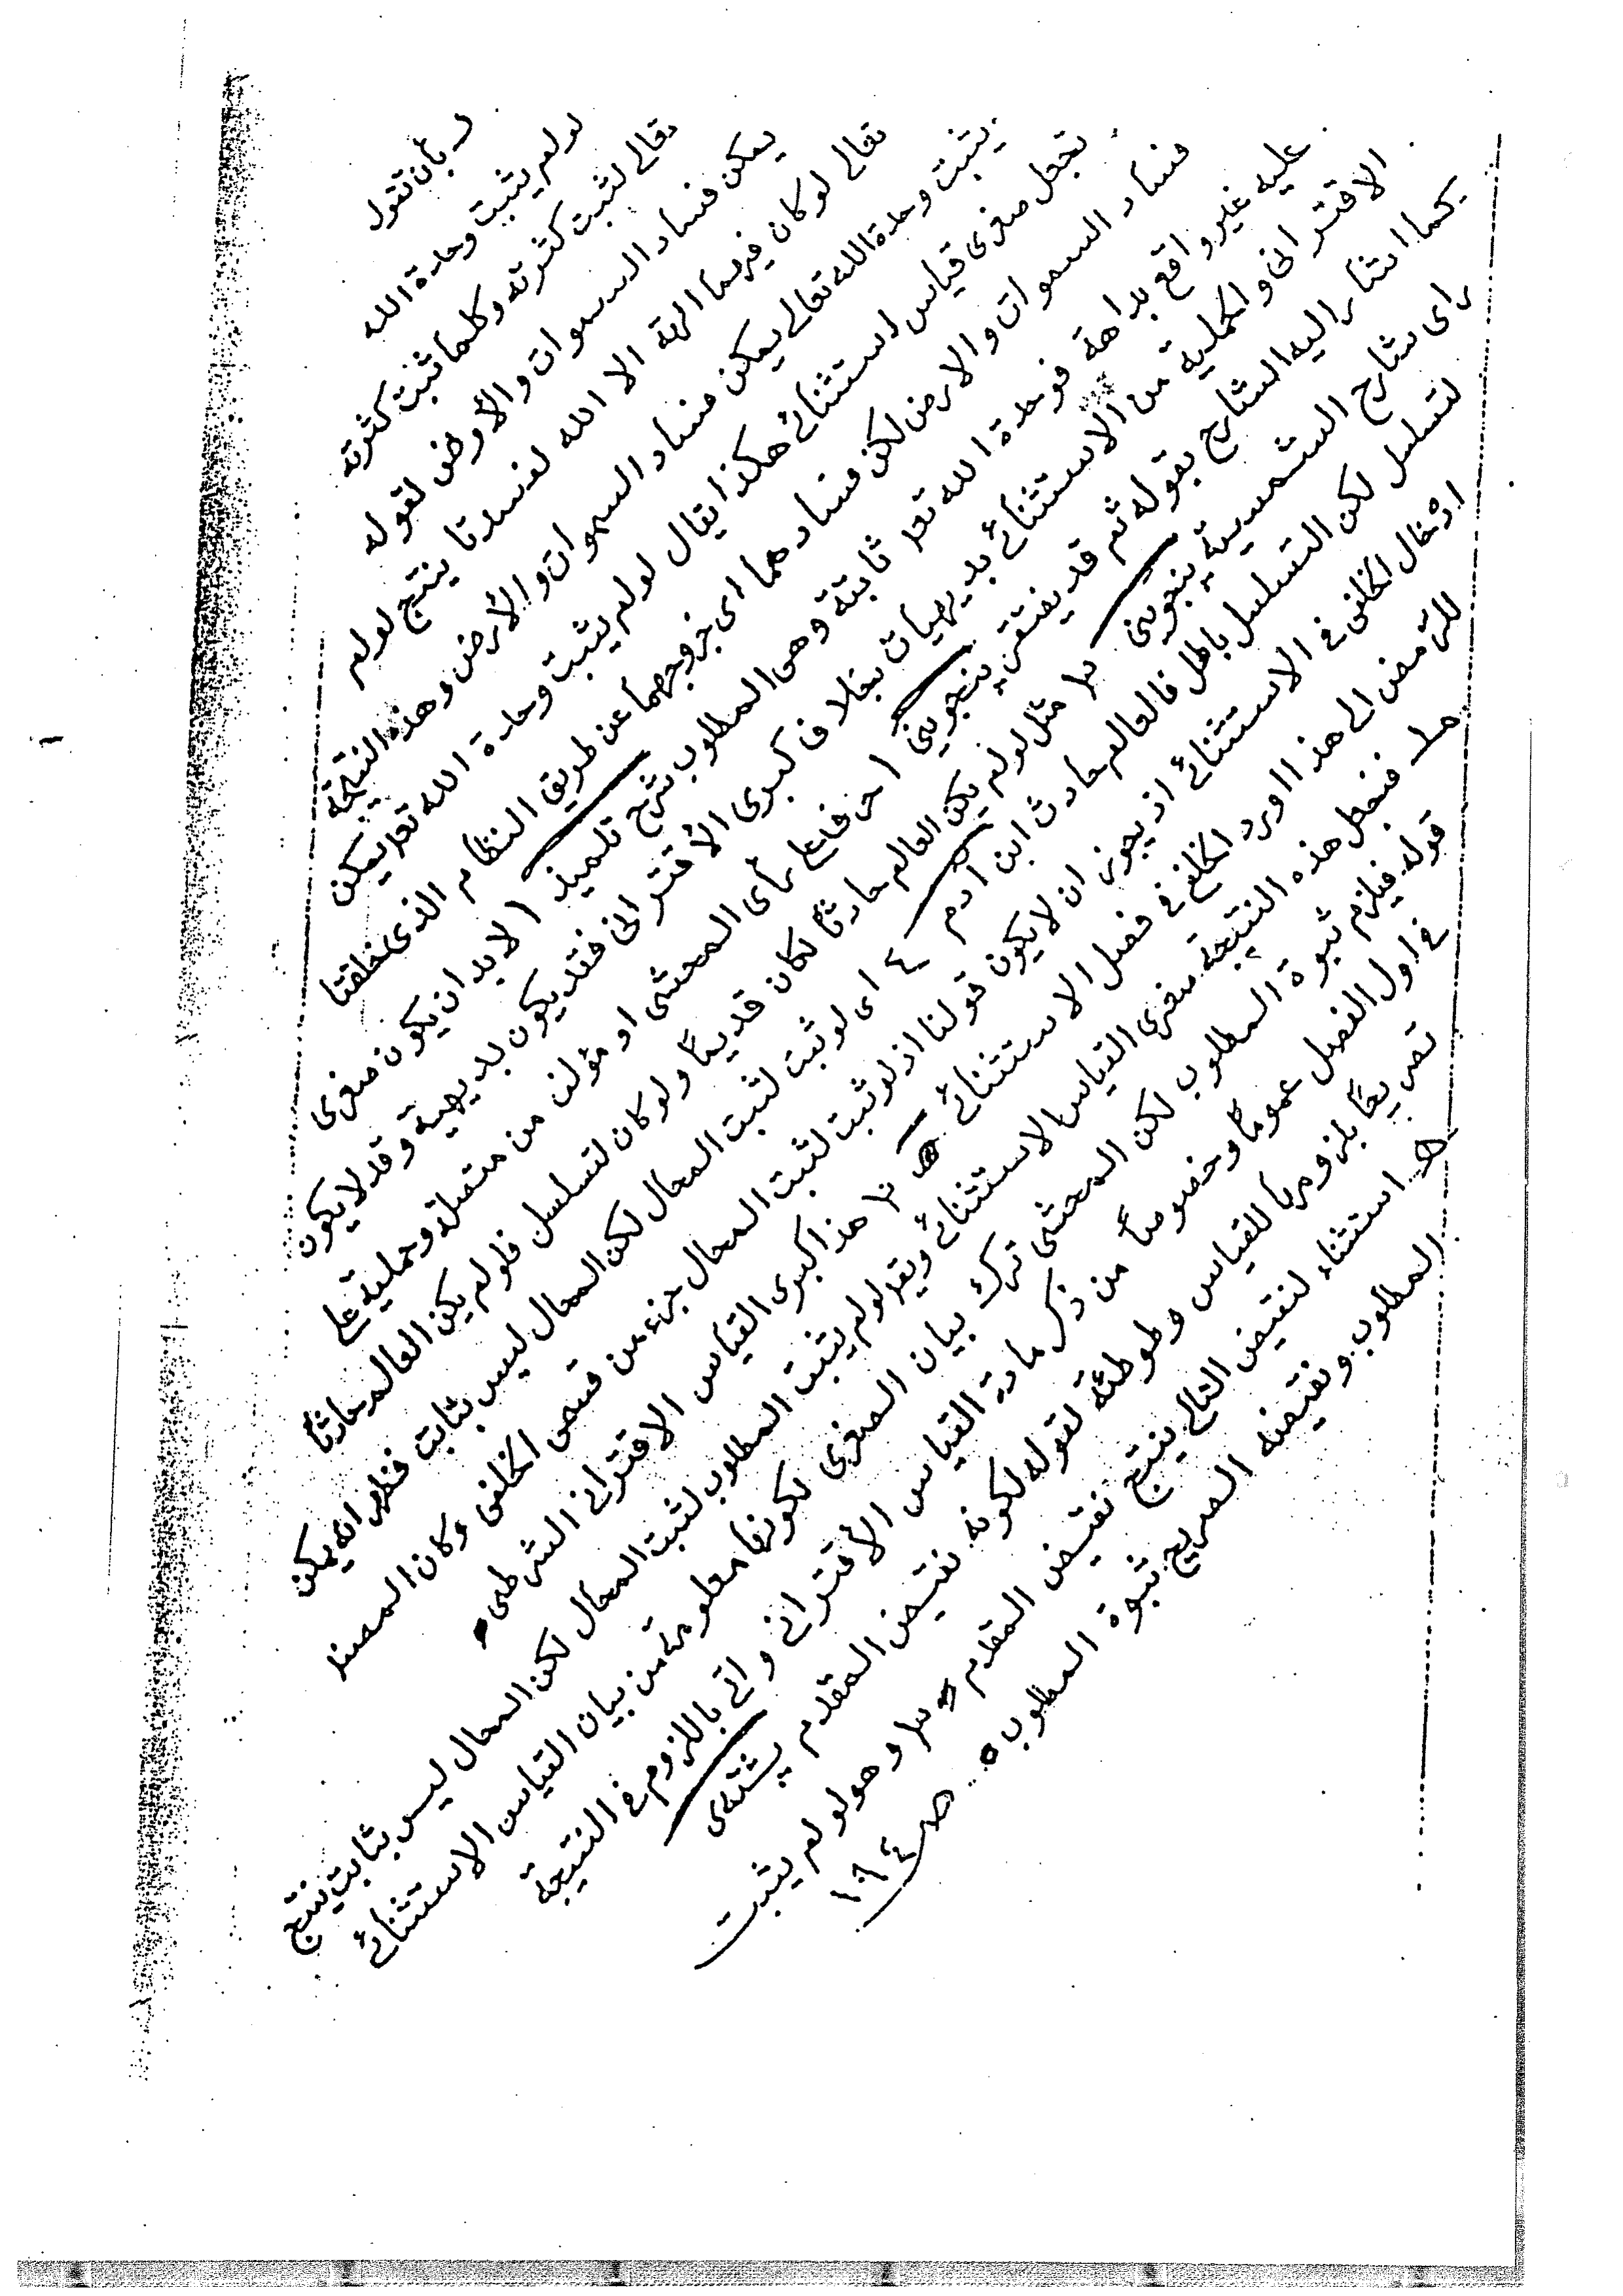 ر بأن تقول
لولم يثبت وحدة الله
تعالى لثبت كثرته وكلما ثبت كثرته
يمكن فساد السموات والأرض لقوله
تعالى لوكان فيهما الهة الا الله لفسدتا ينتج لولم
يثبت وحدة الله تعالى يمكن فساد السموات والأرض وهذه النتيجة
تجعل صغرى قياس استثنائي هكذا يقال لولم يثبت وحدة الله تعا يمكن
فساد السموات والارض لكن فسادهما اى خروجهما عن طريق النظام الذى خلقتا
عليه غير واقع بداهة فوحدة الله تعا ثابتة وهى المطلوب شرح تلميذ ( لا بد ان يكون صغرى
الاقترانى والحملية من الاستثنائي بديهيات بخلاف كبرى الأقترانى فقد يكون بديهية وقد لا يكون
كما اشار اليه الشارح بقوله ثم قد يفتقر پنجوينى على رأى المحشى او مؤلف من متصلة وحملية على
راى شارح الشمسية پنجوينى مثل لولم يكن العالم حادثاً لكان قديماً ولوكان لتسلسل فلولم يكن العالم حادثاً
لتسلسل لكن التسلسل باطل فالعالم حادث ابن آدم ٤ اى لوثبت لثبت المحال لكن المحال ليس بثابت فظهر انه يمكن
ادخال الخلف في الاستثنائي اذ يجوز ان لا يكون قولنا اذ لوثبت لثبت المحال جزء من قسمى الخلف وكان المصنف
للرمز الى هذا اورد الخلف في فصل الاستثنائي هذا كبرى القياس الاقترانى الشرطى
فنجعل هذه النتيجة صغرى القياس الاستثنائي ويقا لولم يثبت المطلوب لثبت المحال لكن المحال ليس بثابت ينتج
قوله فيلزم ثبوة المطلوب لكن المحشى ترك بيان الصغرى لكونها معلومة من بيان القياس الاستثنائي
في اول الفصل عموماً وخصوصاً من ذكر مادة القياس الأقترانى واتى باللزوم في النتيجة
تفريعاً بلزومها للقياس وطوطئة لقوله لكونه نقيض المقدم پشتدى
استثناء لنقيض التالى ينتج نقيض المقدم وهو لولم يثبت
المطلوب ونقيضه الصريح ثبوة المطلوب ص ١٩٤